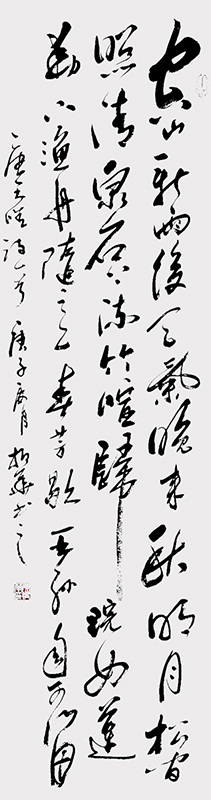 空山新雨後天氣晚來秋明月松間
照清泉石上流竹喧歸浣女蓮
動下漁舟隨意春芳歇王孫自可留
唐王維詩一首 庚子 月 書